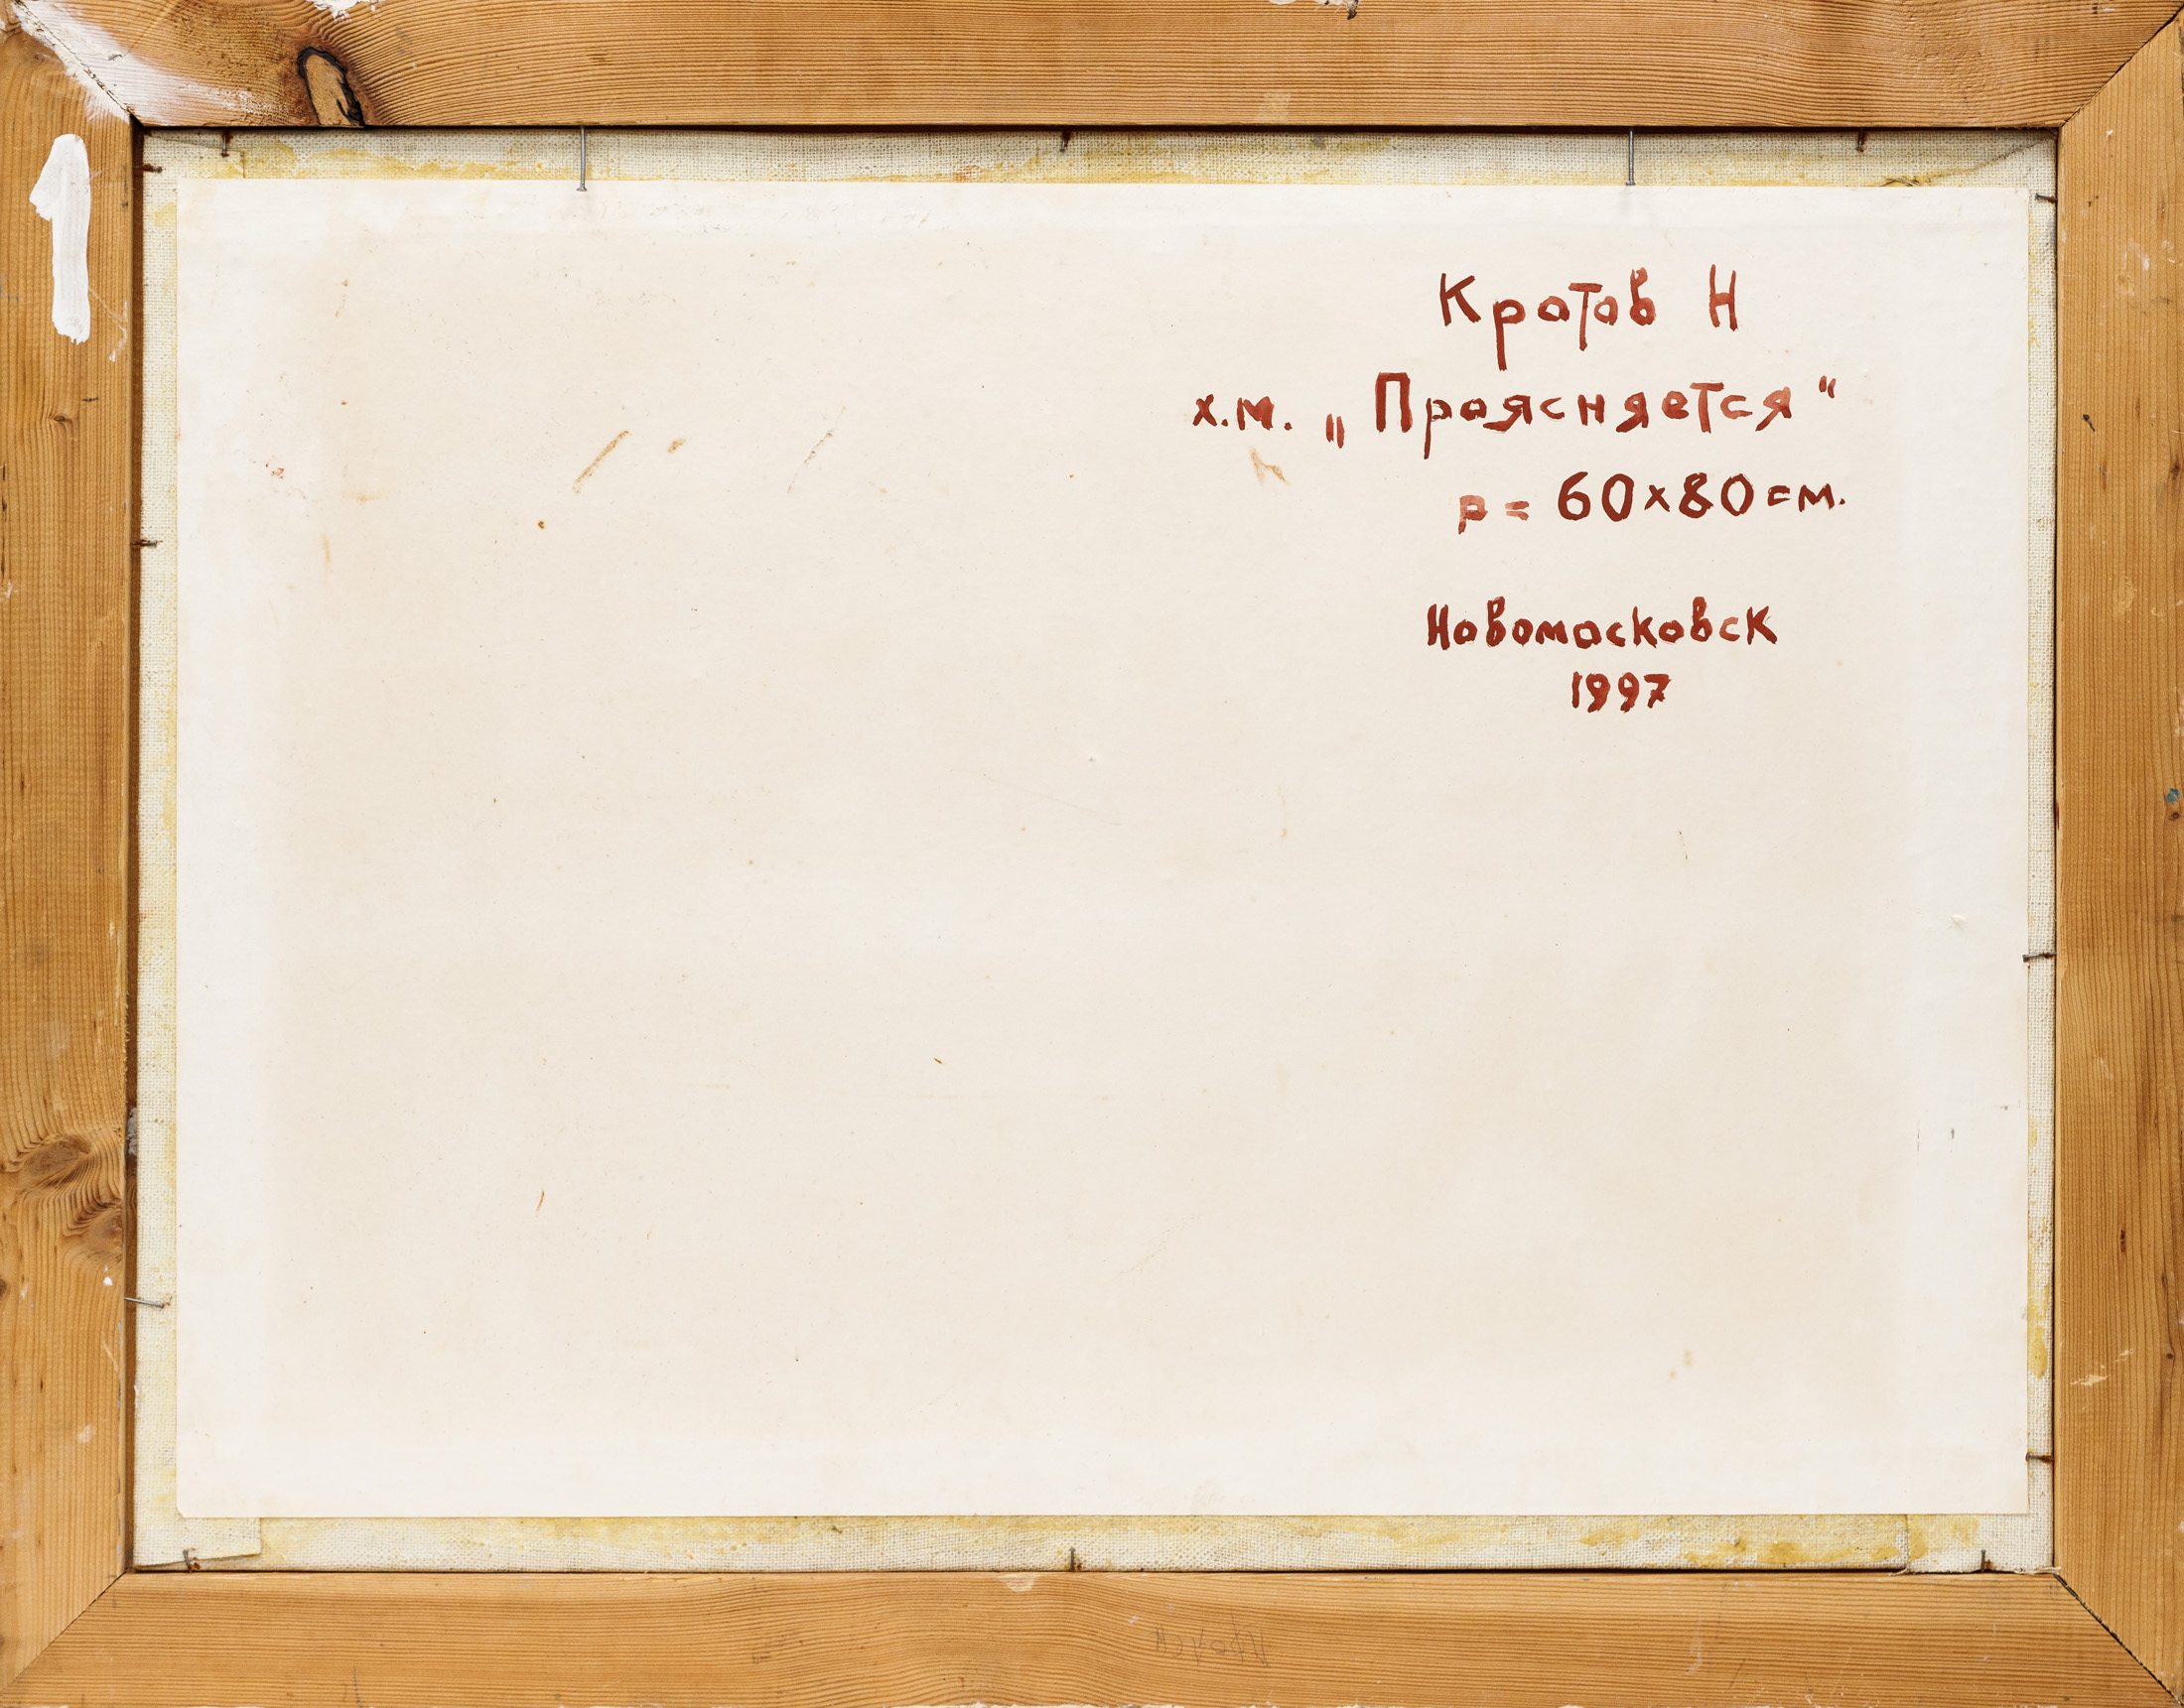 Кротов Н
х.м. „Проясняется“
р = 60x80 см.
Новомосковск
1997